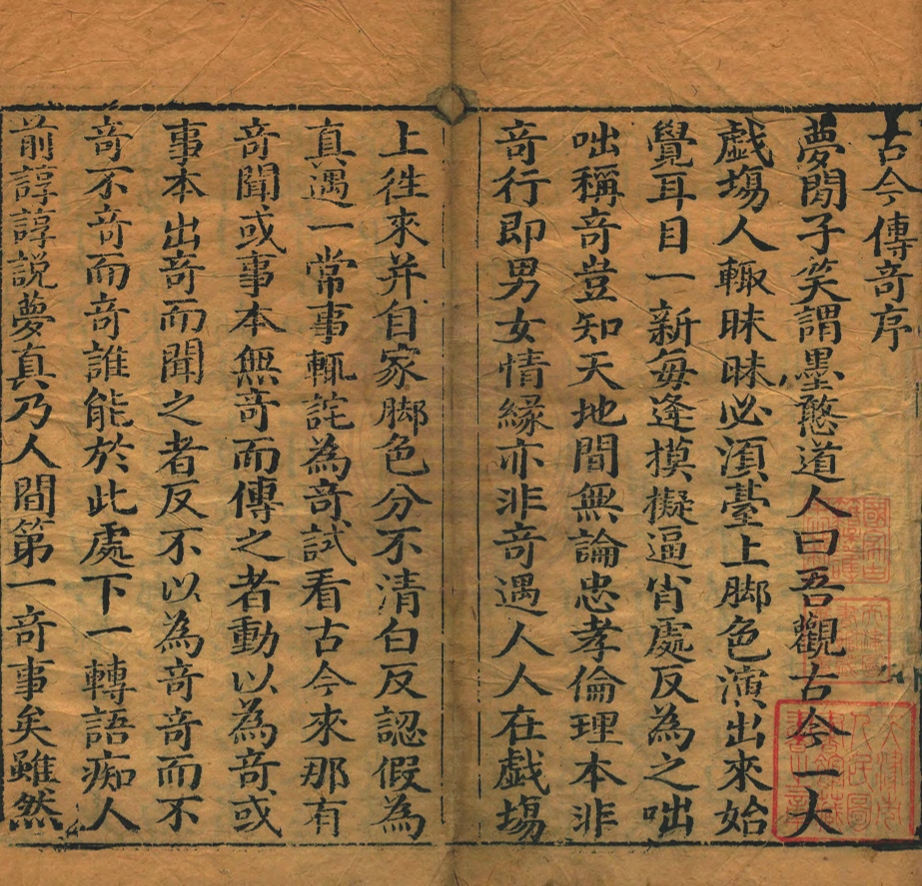 古今傳奇序
夢閒子笑謂墨憨道人曰吾觀古今一大
戯塲人輙昧昧必湏臺上脚色演出來始
覺耳目一新每逢摸擬逼肖處反為之咄
咄稱竒豈知天地間無論忠孝倫理本非
竒行即男女情緣亦非竒遇人人在戯塲
上徃來并自家脚色分不清白反認假為
真遇一常事輒詫為竒試看古今來那有
竒聞或事本無竒而傳之者動以為竒或
事本出竒而聞之者反不以為竒竒而不
竒不竒而竒誰能於此處下一轉語痴人
前諄諄説夢真乃人間第一竒事矣雖然